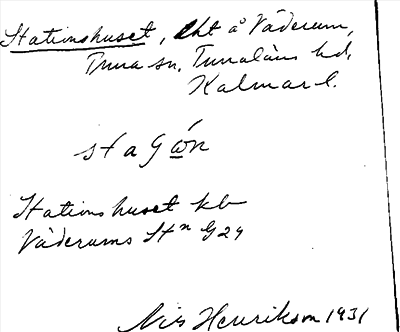 Stationshuset, lht å Väderum,
Tuna sn, Tunaläns hd,
Kalmar l.
staGón
Stationshuset kb
Väderums Stn G24
Nils Henrikson 1931